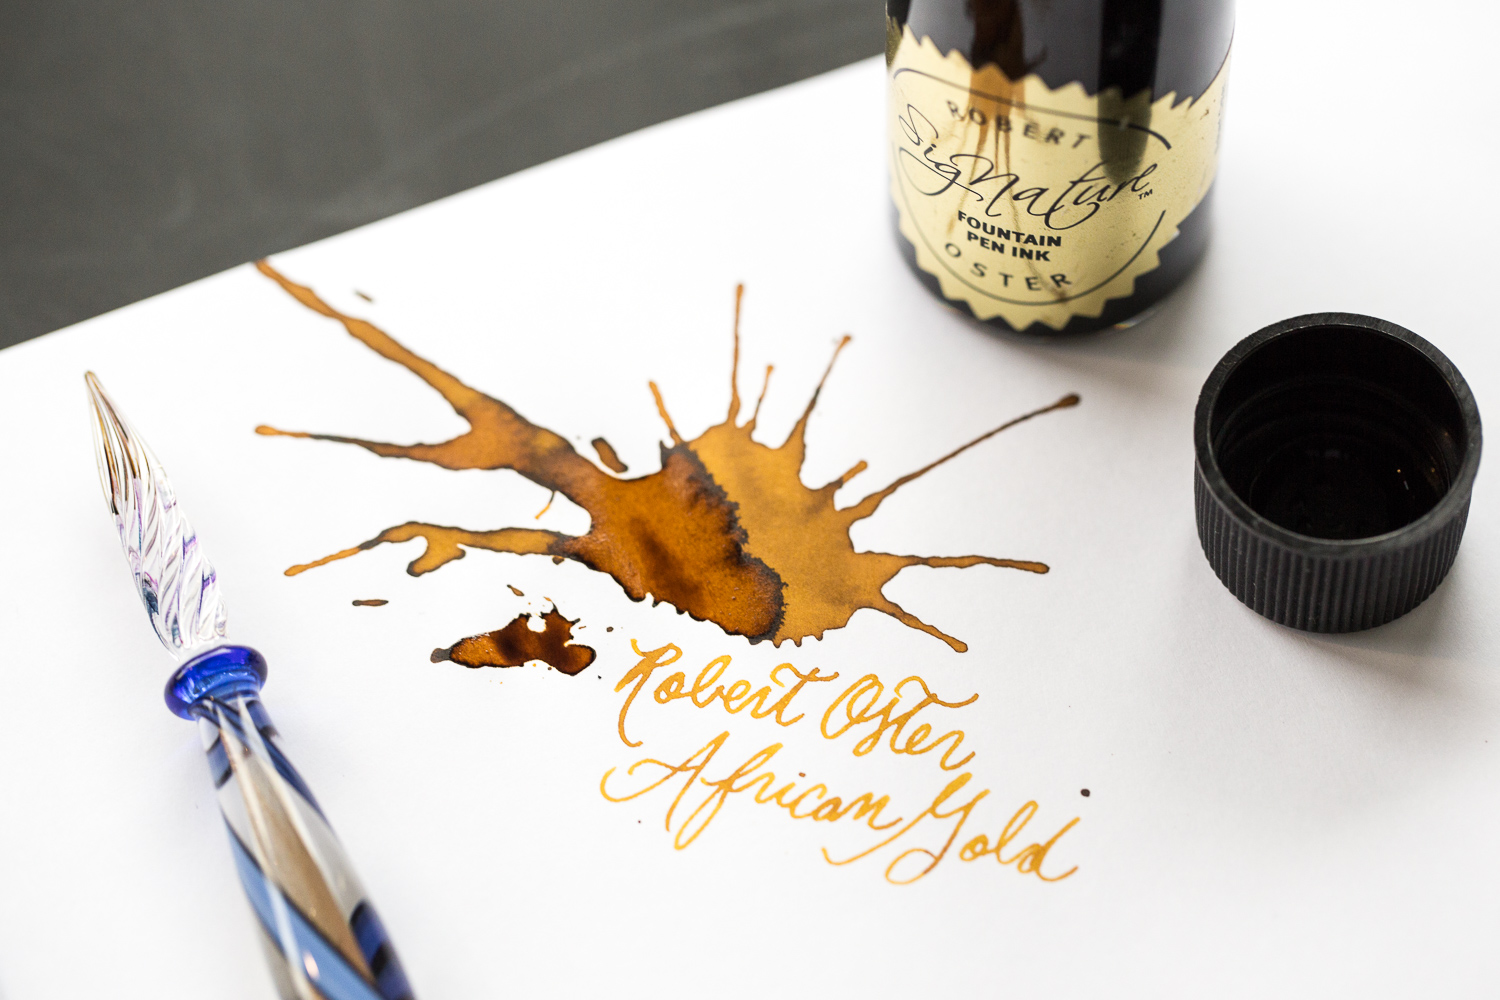 ROBERT
SigNature™
FOUNTAIN
PEN INK
OSTER
Robert Oster
African Gold